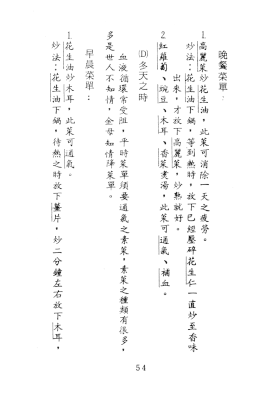 晚餐菜單：
1.高麗菜炒花生油，此菜可消除一天之疲勞。
炒法：花生油下鍋，等到熱時，放下已經壓碎花生仁一直炒至香味
出來，才放下高麗菜，炒熟就好。
2.紅蘿蔔、豌豆、木耳、香菜煮湯，此菜可通氣、補血。
(D)冬天之時
血液循環常受阻，平時菜單須要通氣之素菜，素菜之種類有很多，
多是世人不知情，金母知情降菜單。
早晨菜單：
1.花生油炒木耳，此菜可通氣。
炒法：花生油下鍋，待熱之時放下薑片，炒二分鐘左右放下木耳，
54